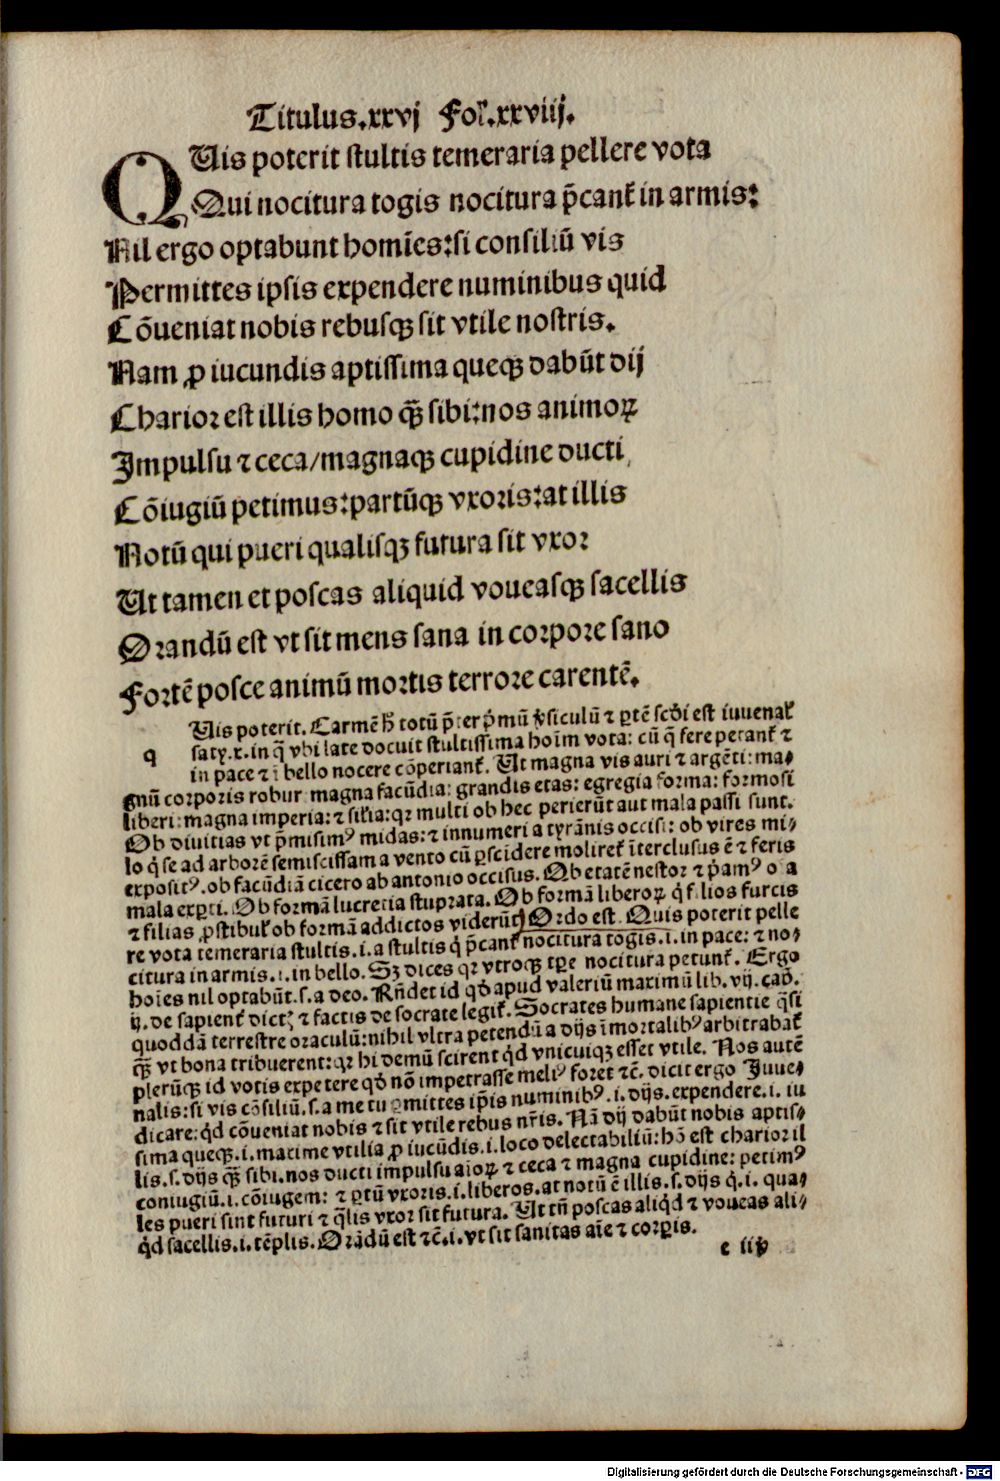 Titulus.xxvj Fol̃.xxviij.
QUis poterit stultis temeraria pellere vota
Qui nocitura togis nocitura p̃cant᷑ in armis:
Nil ergo optabunt homĩes:si consiliũ vis
Permittes ipsis expendere numinibus quid
Cõueniat nobis rebusqꝫ sit vtile nostris.
Nam ꝓ iucundis aptissima queqꝫ dabũt dij
Charior est illis homo qꝫ̃ sibi:nos animoꝝ
Impulsu ⁊ ceca/magnaqꝫ cupidine ducti
Cõiugiũ petimus:partũqꝫ vxoris:at illis
Notũ qui pueri qualisqꝫ futura sit vxor
Ut tamen et poscas aliquid voueasqꝫ sacellis
Orandũ est vt sit mens sana in corpore sano
Fortẽ posce animũ mortis terrore carentẽ.
q Uis poterit. Carmẽ h̃ totũ p̃ter p̃mũ v̓siculũ ⁊ ꝑtẽ scd̓i est iuuenal᷑
saty.x.in q̃ vbi late docuit stultissima hoĩm vota: cũ q̃ fere petant᷑ ⁊
in pace ⁊ ĩ bello nocere cõperiant᷑. Ut magna vis auri ⁊ argẽti: ma⸗
gnũ corporis robur magna facũdia: grandis etas: egregia forma: formosi
liberi: magna imperia: ⁊ sil̓ia: qꝛ multi ob hec perierũt aut mala passi sunt.
Ob diuitias vt p̃misimꝰ midas: ⁊ innumeri a tyrãnis occisi: ob vires mi⸗
lo q̓ se ad arborẽ semiscissam a vento cũ ꝑscidere moliret᷑ ĩterclusus ẽ ⁊ feris
expositꝰ. ob facũdiã cicero ab antonio occisus. Ob etatẽ nestor ⁊ p̓amꝰ o a
mala exꝑti. Ob formã lucretia stuprata. Ob formã liberoꝝ q̓ filios furcis
⁊ filias ꝓstibul᷑ ob formã addictos viderũt) Ordo est. Quis poterit pelle
re vota temeraria stultis.i.a stultis q̓ p̃cant᷑ nocitura togis.i.in pace: ⁊ no⸗
citura in armis.i.in bello. Sꝫ dices qꝛ vtroqꝫ tꝑe nocitura petunt᷑. Ergo
hoĩes nil optabũt.s.a deo. Rñdet id qd̓ apud valeriũ maximũ lib.vij.cap̃.
ij. de sapient᷑ dict᷑ ⁊ factis de socrate legit᷑. Socrates humane sapientie q̃si
quoddã terrestre oraculũ: nihil vltra petendũ a dijs ĩmortalibꝰ arbitrabat᷑
qꝫ̃ vt bona tribuerent: qꝛ hi demũ scirent qd̓ vnicuiqꝫ esset vtile. Nos autẽ
plerũqꝫ id votis expetere qd̓ nõ impetrasse meliꝰ foret ⁊c̃. dicit ergo Iuue⸗
nalis: si vis cõsiliũ.s.a me tu ꝑmittes ip̃is numinibꝰ.i.dijs.expendere.i.iu
dicare: qd̓ cõueniat nobis ⁊ sit vtile rebus nr̃is. Nã dij dabũt nobis aptis⸗
sima queqꝫ.i.maxime vtilia ꝓ iucũdis.i.loco delectabiliũ: hõ est charior il
lis.s.dijs qꝫ̃ sibi.nos ducti impulsu aioꝝ ⁊ ceca ⁊ magna cupidine: petimꝰ
coniugiũ.i.cõiugem: ⁊ ꝑtũ vxoris.i.liberos.at notũ ẽ illis.s.dijs q̓.i.qua⸗
les pueri sint futuri ⁊ q̃lis vxor sit futura. Ut tñ poscas aliqd̓ ⁊ voueas ali⸗
qd̓ sacellis.i.tẽplis. Orãdũ est ⁊c̃.i.vt sit sanitas aĩe ⁊ corꝑis.
e iiij
Digitalisierung gefördert durch die Deutsche Forschungsgemeinschaft - DFG